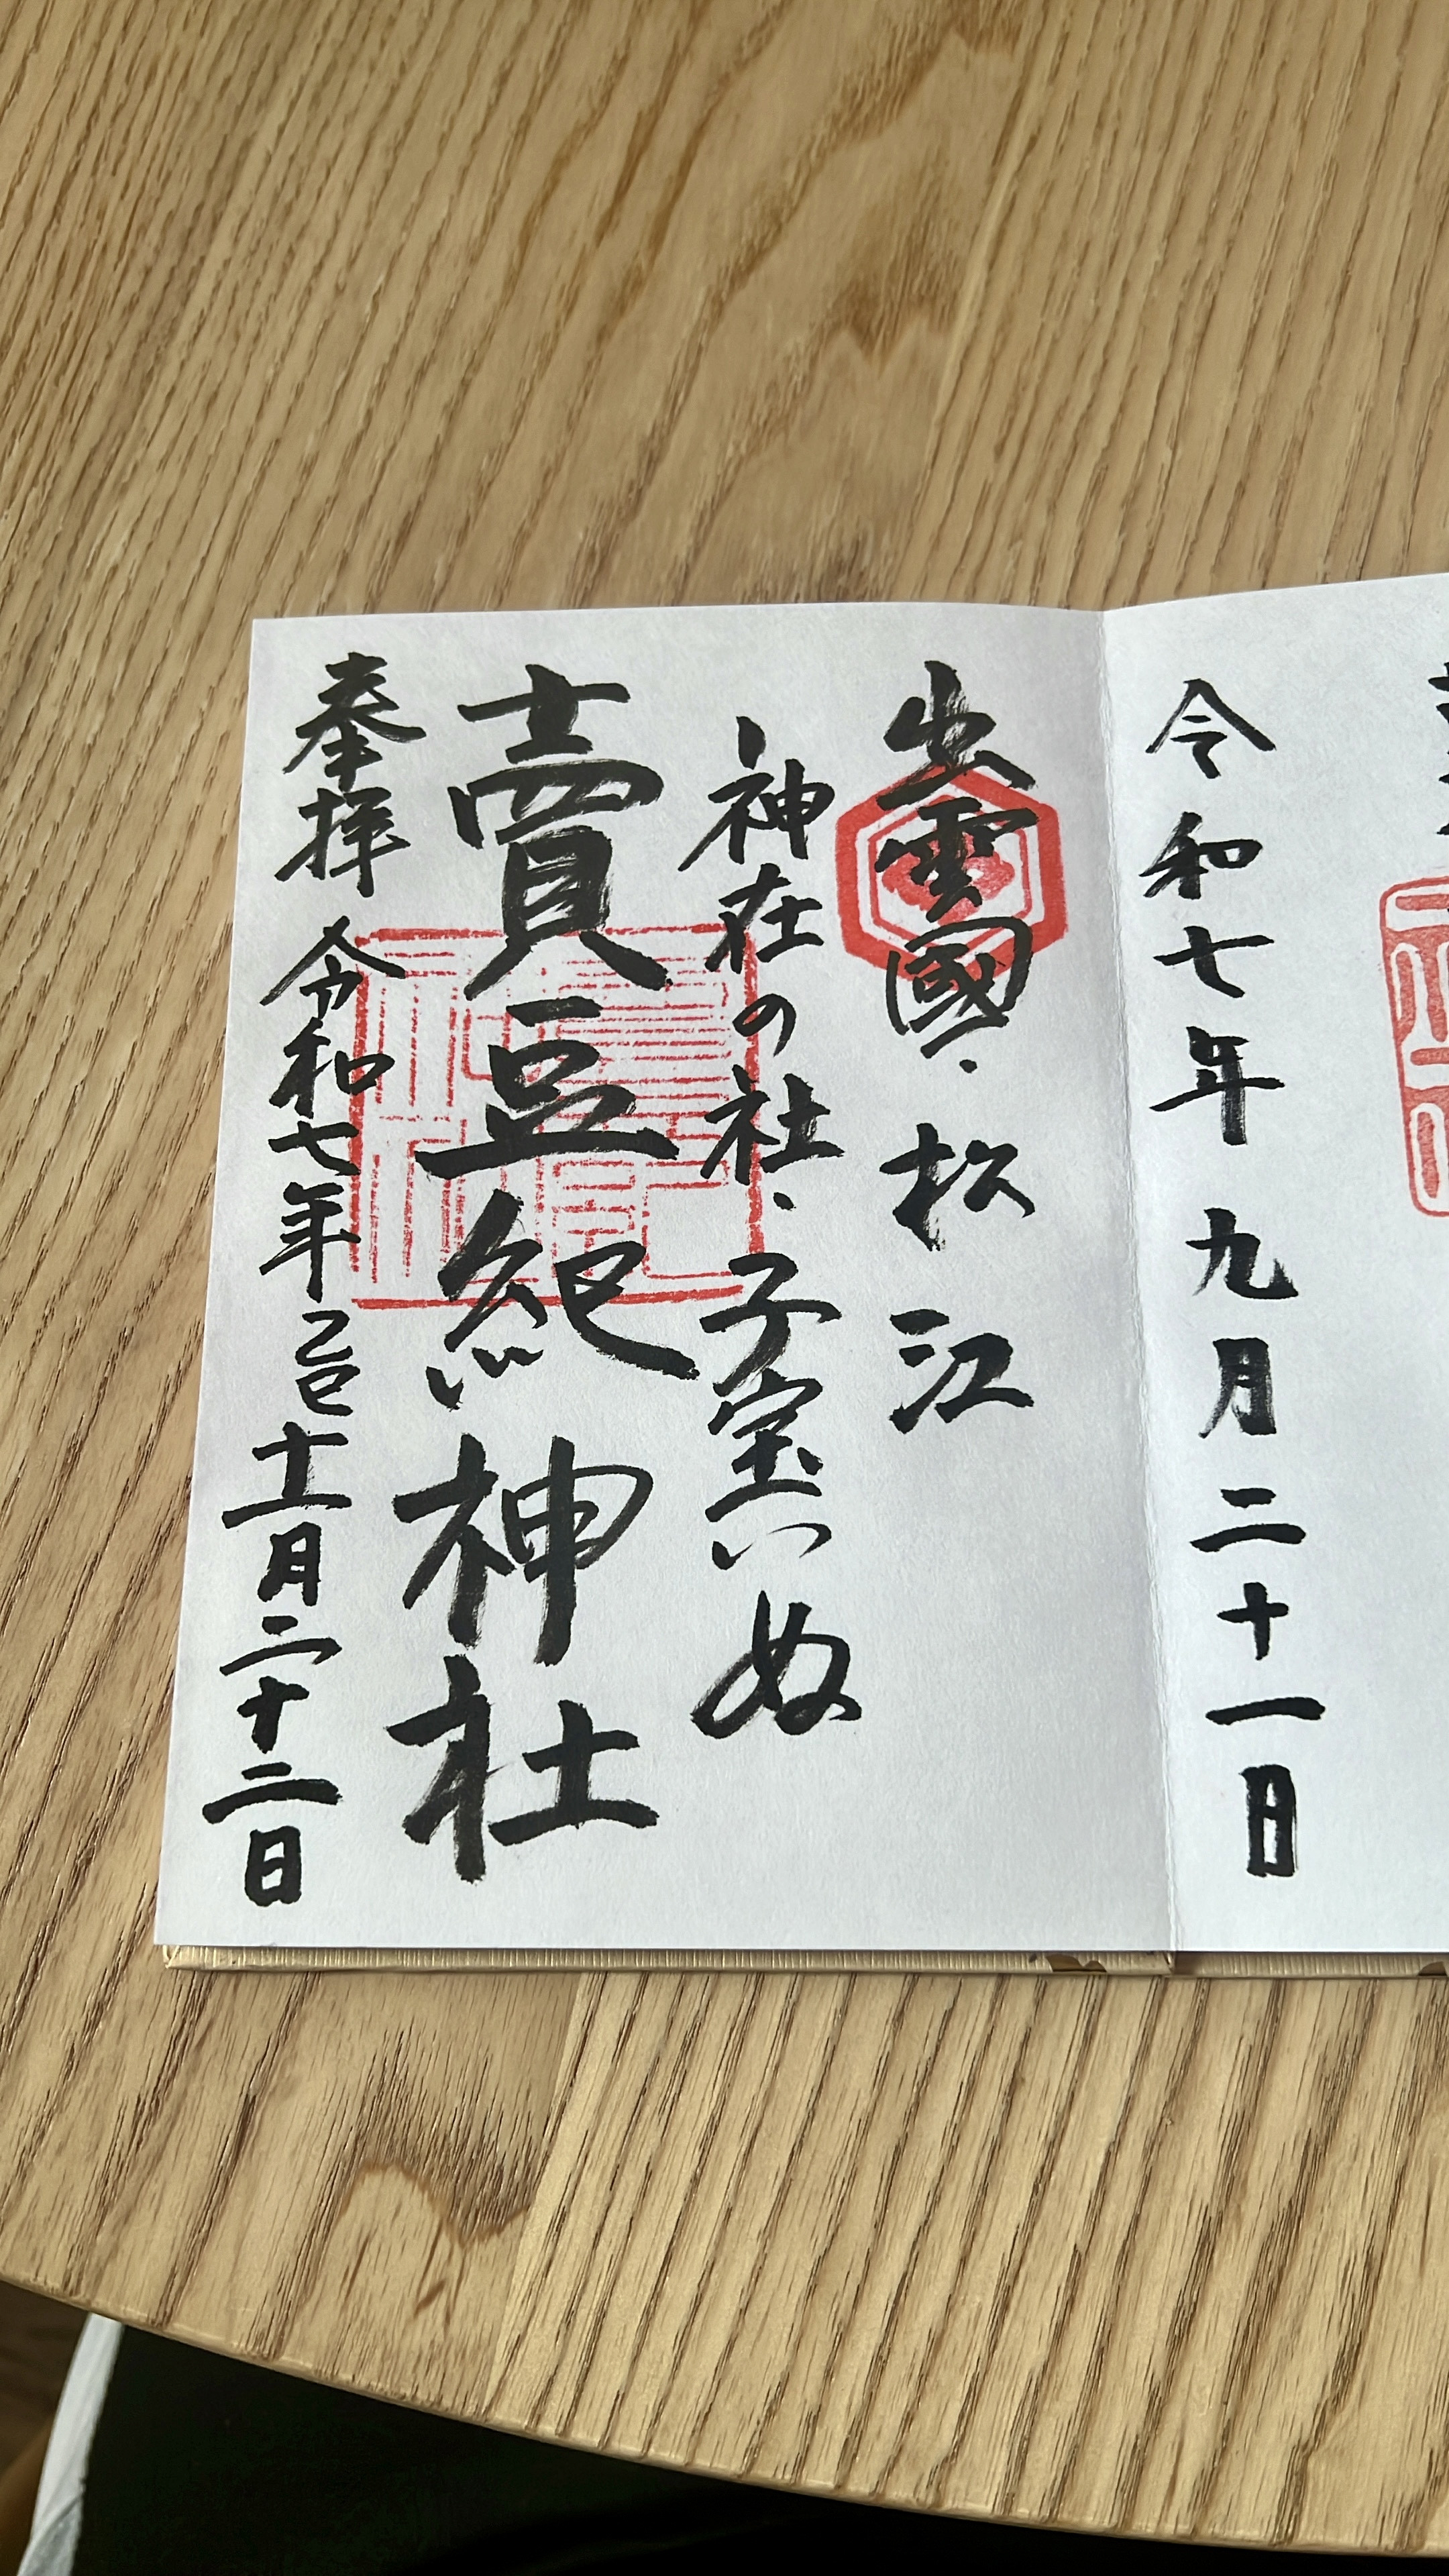 令和七年九月二十一日
出雲國・松江
神在の社・子宝いぬ
賣豆紀神社
奉拝 令和七年乙巳十一月二十二日